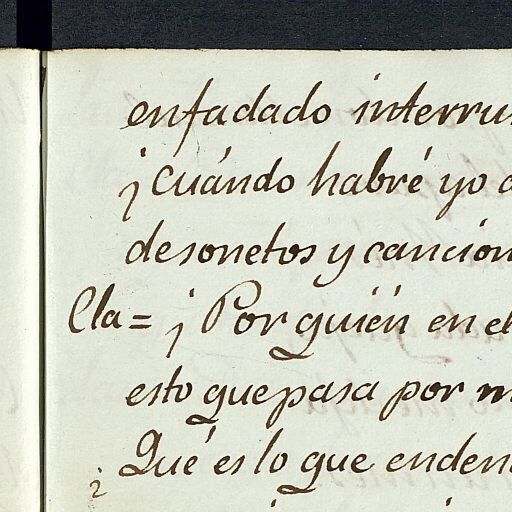 enfadado interru
¡Cuándo habré yo
de sonetos y cancion
Cla= ¡Por quién en el
esto que pasa por m
¿Qué es lo que enden